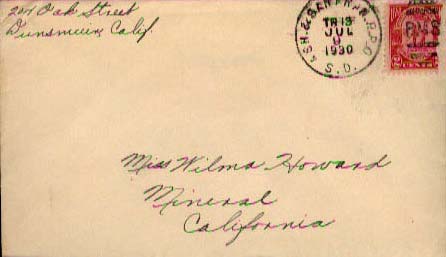 204 Oak Street
Dunsmuir, Calif.
ASH. & SAN FRAN. R.P.O.
TR 13
JUL
9
1930
S.D.
RMS
2 CENTS 2
Miss Wilma Howard
Mineral
California